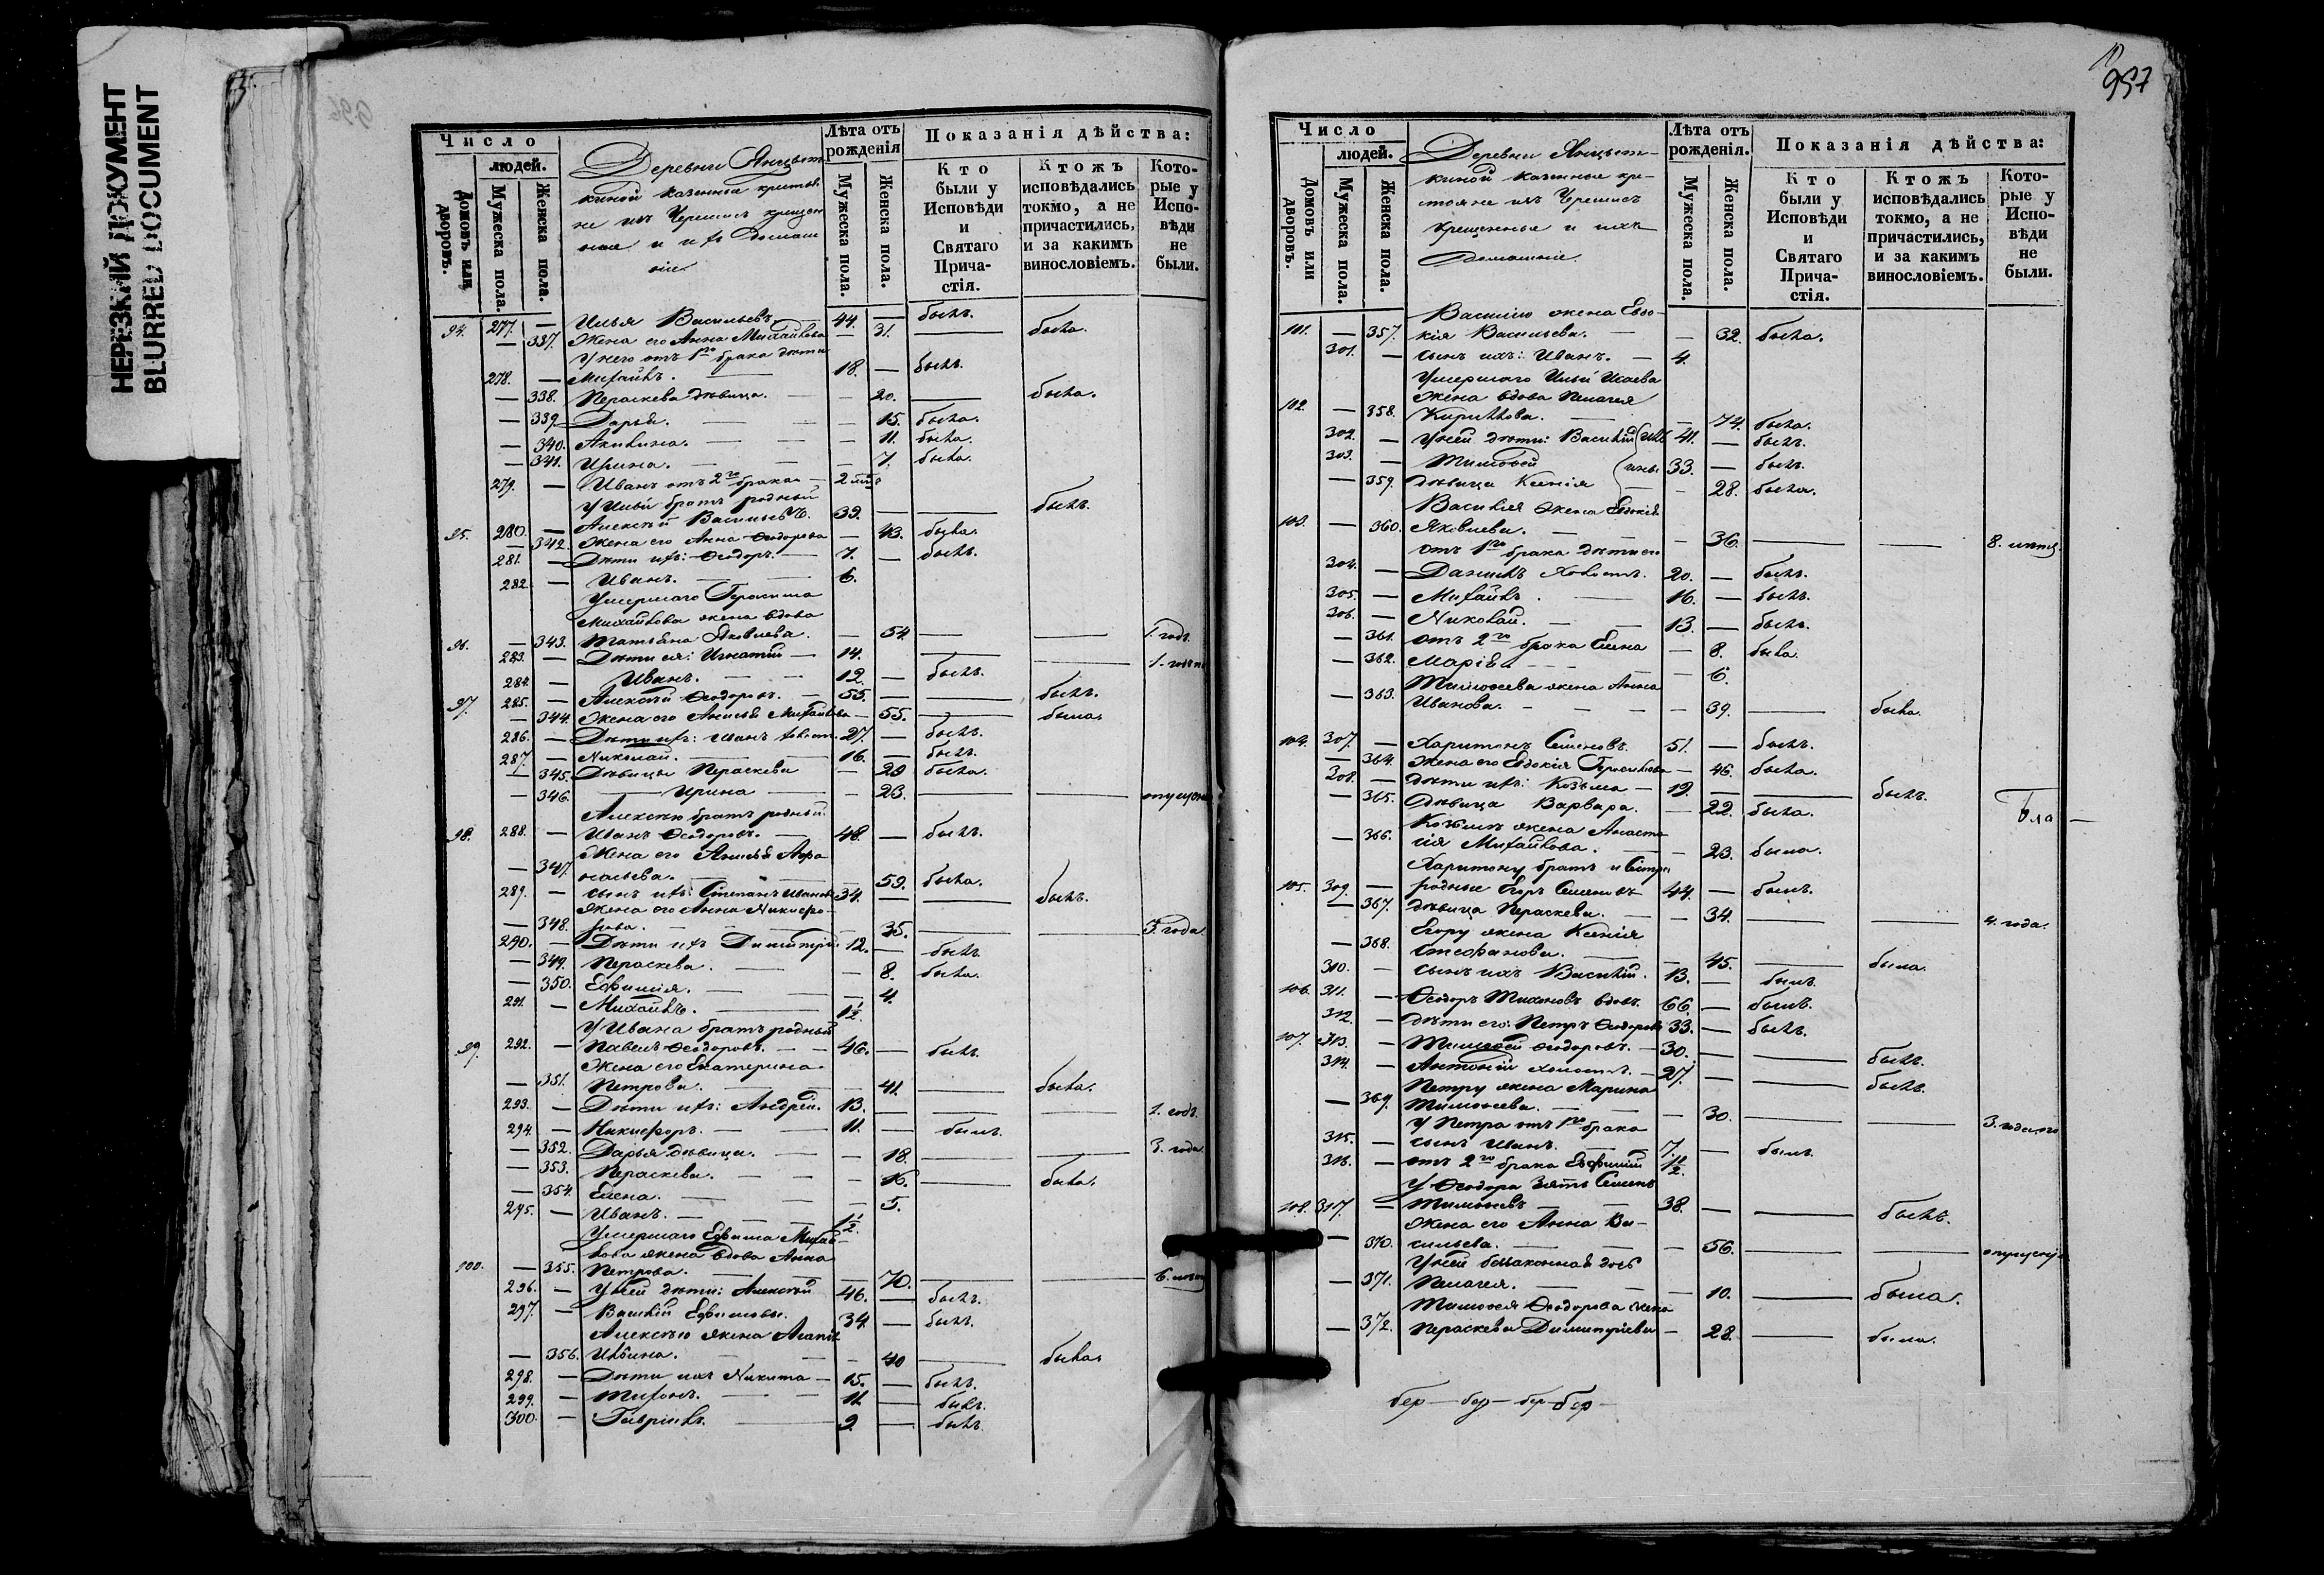 НЕРЕЗКИЙ ДОКУМЕНТ
BLURRED DOCUMENT
Число
людей.
Домовъ или дворовъ.
Мужеска пола.
Женска пола.
Деревни
казенные крестья
не изъ Черемисъ крещен
ные и ихъ домаш
ніе
Лѣта отъ рожденія
Мужеска пола.
Женска пола.
Показанія дѣйства:
Кто были у Исповѣди и Святаго Прича-стія.
Ктожъ исповѣдались токмо, а не причастились, и за какимъ винословіемъ.
Кото-рые у Испо-вѣди не были.
94. 277. — Илья Васильевъ. 44. — былъ.
— 337. Жена его Анна Михайлова — 31. — была.
У него отъ 1го брака дѣти
278. — Михаилъ. 18. — былъ.
— 338. Параскева дѣвица. — 20. — была.
— 339. Дарья. — 15. была.
— 340. Акилина. — 11. была.
— 341. Ирина. — 7. была.
279. — Иванъ отъ 2го брака — 2
У Ильи братъ родный
95. 280. — Алексѣй Васильевъ. 39. — былъ.
— 342. Жена его Анна Ѳеодорова — 43. была.
281. — Дѣти ихъ: Ѳеодоръ. — 7. — былъ.
282. — Иванъ. — 6.
Умершаго Герасима
Михайлова жена вдова
96. — 343. Татьяна Яковлева. — 54 — 1. годъ.
283. — Дѣти ея: Игнатій — 14. — 1. годъ
284. — Иванъ. — 12. — былъ.
97. 285. — Алексѣй Ѳеодоровъ. — 55. — былъ.
— 344. Жена его Анисья Михайлова — 55. — была.
286. — Дѣти ихъ: Иванъ холост. 27. — былъ.
287. — Николай. — 16. — былъ.
— 345. Дѣвицы Параскева — 29 была.
— 346. — Ирина — 23. —
Алексѣю братъ родный
98. 288. — Иванъ Ѳеодоровъ. — 48. — былъ.
Жена его Анисья Аѳа
— 347. насьева. — 59. была.
289. — сынъ ихъ: Степанъ Ивановъ 34. — былъ.
Жена его Анна Никифо-
— 348. рова. — 35. — 3. года.
290. — Дѣти ихъ Димитрій 12. — былъ.
— 349. Параскева. — 8. была.
— 350. Ефимія. — 4.
291. — Михаилъ. — 1½
У Ивана братъ родный
99. 292. — Павелъ Ѳеодоровъ. — 46. — былъ.
Жена его Екатерина
— 351. Петрова. — 41. — была.
293. — Дѣти ихъ: Андрей. 13. — 1. годъ.
294. — Никифоръ. — 11. — былъ.
— 352. Дарья дѣвица. — 18. — 3. года.
— 353. Параскева. — 16. — была.
— 354. Елена. — 5.
295. — Иванъ. — 1½
Умершаго Ефима Михай-
лова жена вдова Анна
100. — 355. Петрова. — 70. — 6.
296. — У ней дѣти: Алексѣй 46. — былъ.
297. — Василій Ефимовы. 34. — былъ.
Алексѣю жена Агапія
— 356. Ильина. — 40 — была.
298. — Дѣти ихъ Никита — 15. — былъ.
299. — Тихонъ. — 11. — былъ.
300. — Гаврилъ. — 9. — былъ.
957
Число
людей.
Домовъ или дворовъ.
Мужеска пола.
Женска пола.
Деревни
казенные кре-
стьяне изъ Черемисъ
крещенные и ихъ
домашніе.
Лѣта отъ рожденія.
Мужеска пола.
Женска пола.
Показанія дѣйства:
Кто были у Исповѣди и Святаго Прича-стія.
Ктожъ исповѣдались токмо, а не причастились, и за какимъ винословіемъ.
Кото-рые у Испо-вѣди не были.
Василію жена Евдо-
101. — 357. кія Васильева. — 32. была.
301. — сынъ ихъ: Иванъ. — 4.
Умершаго Ильи Исаева
жена вдова Пелагея
102. — 358. Кириллова. — 74. была.
302. — У ней дѣти: Василій 41. — былъ.
303. — Тимоѳей 33. — былъ.
— 359. дѣвица Ксенія — 28. была.
Василія жена Евдокія
103. — 360. Яковлева. — 36. — 8.
отъ 1го брака дѣти его
304. — Даниилъ холостъ. 20. — былъ.
305. — Михаилъ. — 16. — былъ.
306. — Николай. — 13. — былъ.
— 361. отъ 2го брака Елена — 8. была.
— 362. Марія — 6.
Тимоѳея жена Анна
— 363. Иванова. — 39. — была.
104. 307. — Харитонъ Семеновъ. 51. — былъ.
— 364. Жена его Евдокія Герасимова — 46. была.
308. — дѣти ихъ: Козьма — 19. — былъ.
— 365. Дѣвица Варвара. — 22. была.
Козьмѣ жена Анаста
— 366. сія Михайлова. — 23. была.
Харитону братъ и сестра
105. 309. — родные Егоръ Семеновъ 44. — былъ.
— 367. дѣвица Параскева. — 34. — 4. года.
Егору жена Ксенія
— 368. Стефанова. — 45. — была.
310. — сынъ ихъ Василій. 13. — былъ.
106. 311. — Ѳеодоръ Тихоновъ вдовъ. 66. — былъ.
312. — дѣти его: Петръ Ѳеодоровъ 33. — былъ.
107. 313. — Тимоѳей Ѳеодоровъ. — 30. — былъ.
314. — Антоній холостъ. — 27. — былъ.
Петру жена Марина
— 369. Тимоѳеева. — 30. — 3. года
У Петра отъ 1го брака
315. — сынъ Иванъ. — 7. — былъ.
316. — отъ 2го брака Ефимій 1½
У Ѳеодора зять Семенъ
108. 317. — Тимоѳеевъ — 38. — былъ.
Жена его Анна Ва-
— 370. сильева. — 56. —
У ней беззаконная дочь
— 371. Пелагея. — 10. — была.
Тимоѳея Ѳеодорова жена
— 372. Параскева Димитріева — 28. — была.